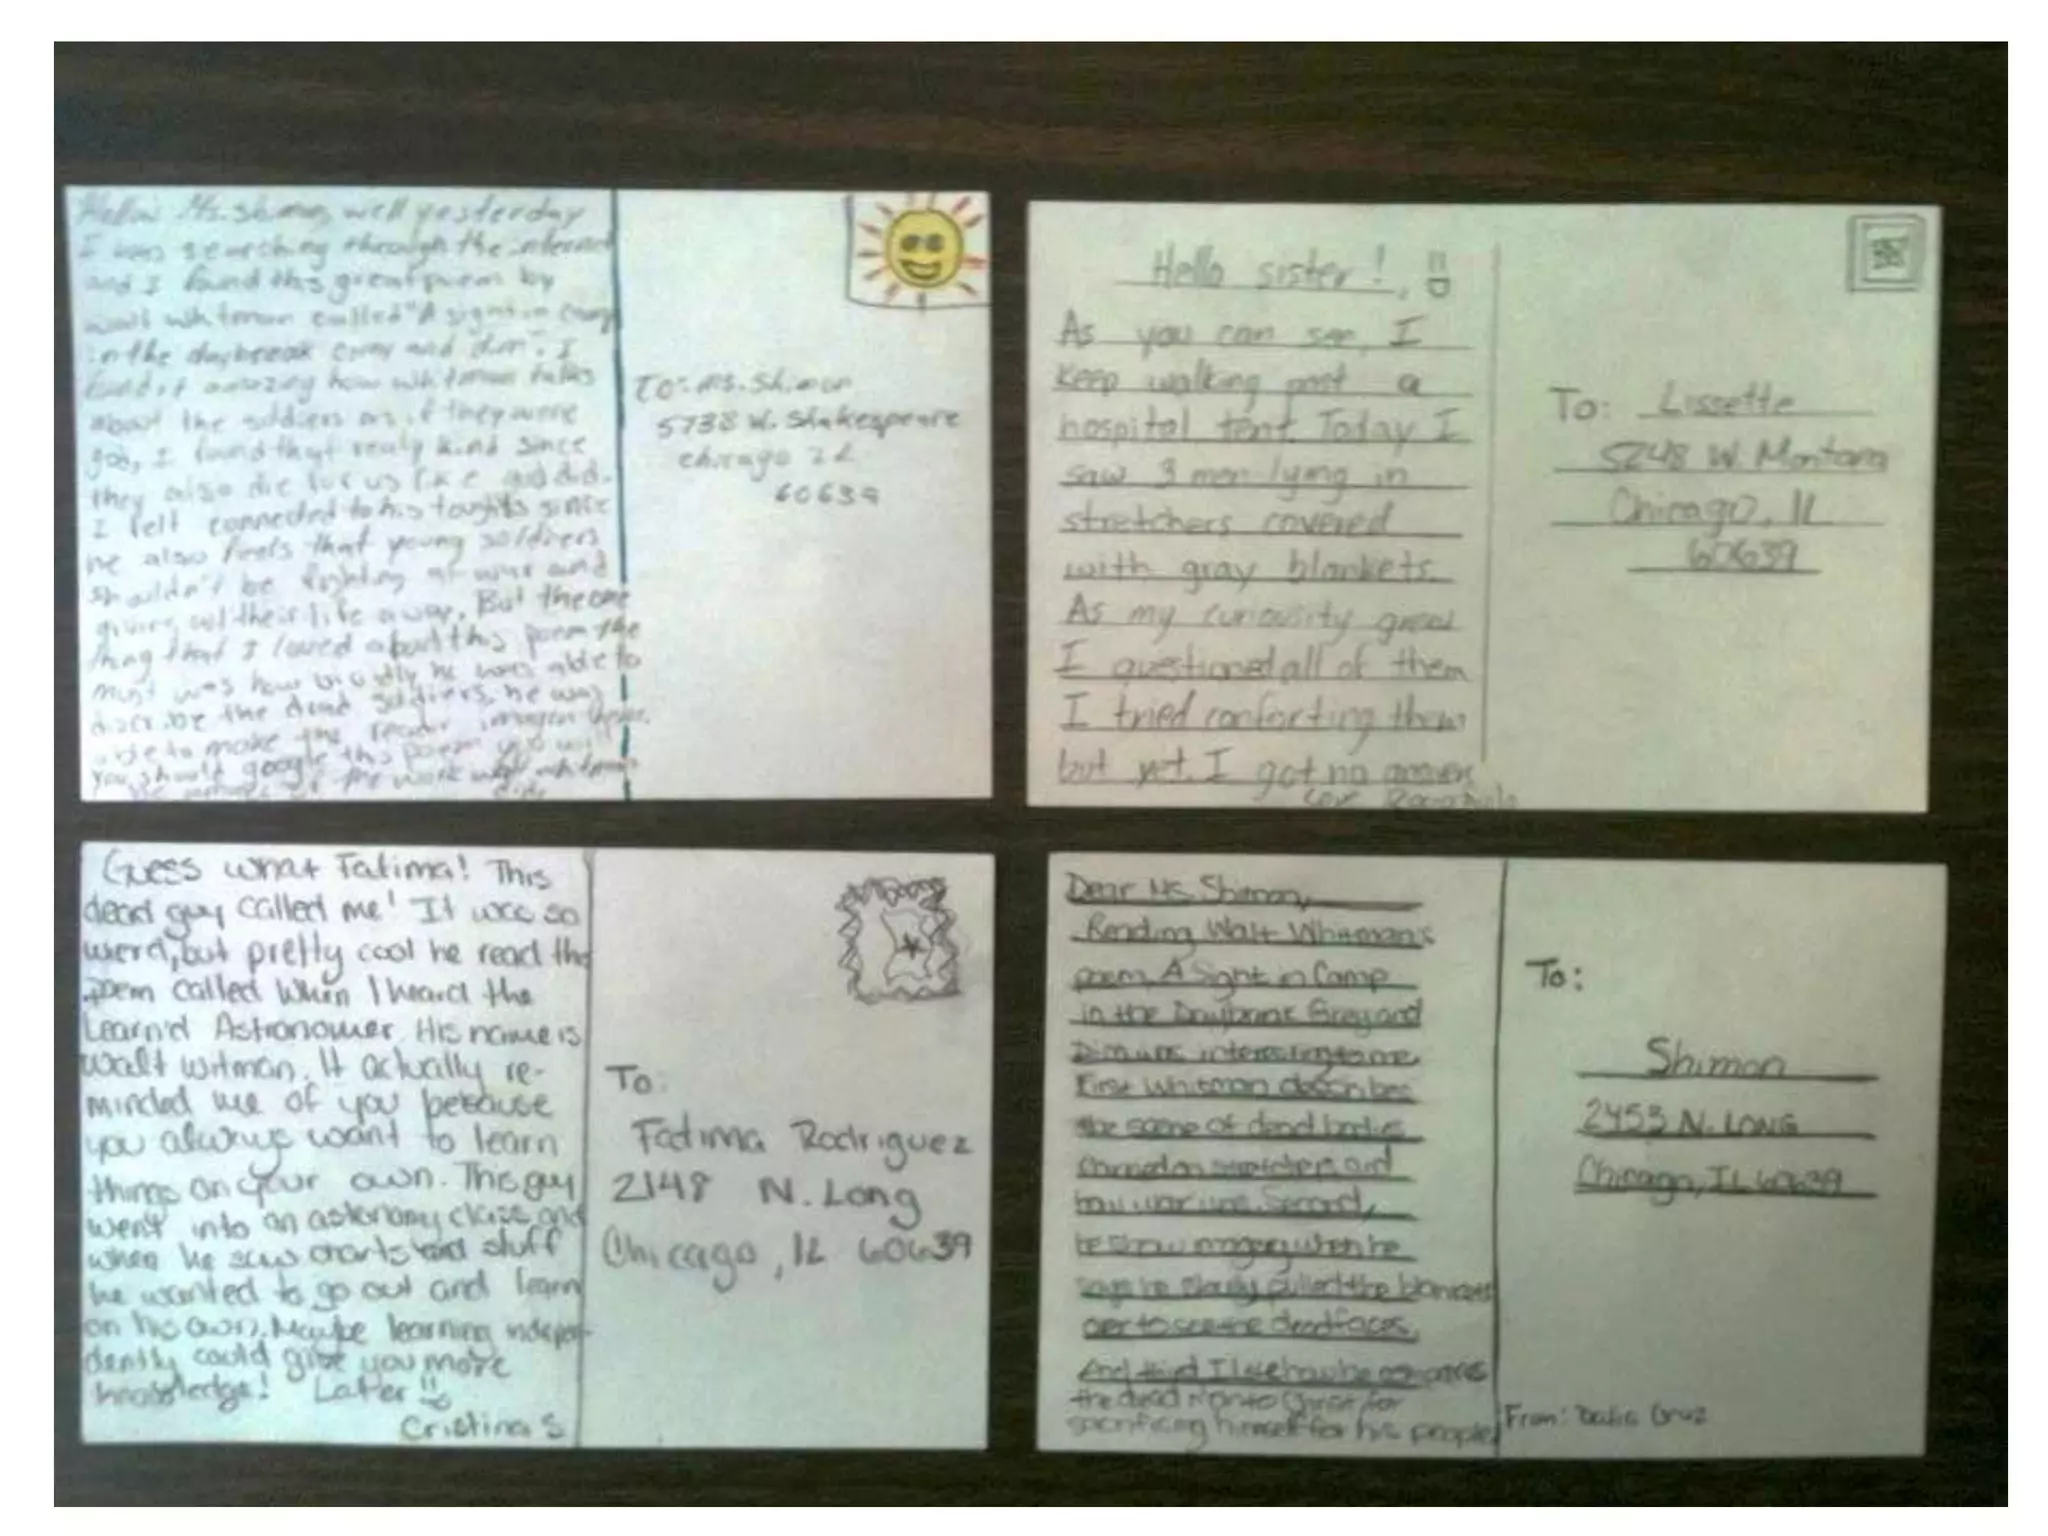 Hello Ms. Shimon, well yesterday
I was searching through the internet
and I found this great poem by
walt whitman called "A sight in camp
in the daybreak grey and dim". I
find it amazing how whitman talks
about the soldiers as if they were
god, I found that realy kind since
they also die for us like god did.
I felt connected to his toughts since
he also feels that young soldiers
shouldn't be fighting at war and
giving out their life away. But the one
thing that I loved about this poem the
most was how vividly he was able to
discribe the dead soldiers, he was
able to make the reader imagen
You should google this poem you will
the work walt whitman
did.
To: Ms. Shimon
5738 W. Shakespeare
chicago IL
60639
Hello sister! :D
As you can see, I
Keep walking past a
hospital tent. Today I
saw 3 men lying in
stretchers covered
with gray blankets.
As my curiousity grew
I questioned all of them
I tried conforting them
but yet I got no answer
To: Lissette
5248 W. Montana
Chicago, IL
60639
Guess what Fatima! This
dead guy called me! It was so
weird, but pretty cool he read the
poem called When I heard the
Learn'd Astronomer. His name is
Walt Witman. It actually re-
minded me of you because
you always want to learn
things on your own. This guy
went into an astronomy class and
when he saw charts and stuff
he wanted to go out and learn
on his own. Maybe learning indepen-
dently could give you more
knowledge! Later :)
Cristina S
To:
Fatima Rodriguez
2148 N. Long
Chicago, IL 60639
Dear Ms. Shimon,
Reading Walt Whitman's
poem, A Sight in Camp
in the Daybreak Grey and
Dim was interesting to me.
First Whitman describes
the scene of dead bodies
carried on stretchers and
how war was. Second,
he show imagery when he
says he slowly pulled the blankets
over to see the dead faces.
And third I like how he compares
the dead man to Christ for
sacrificing himself for his people
To:
Shimon
2453 N. LONG
Chicago, IL 60639
From: Dalia Cruz